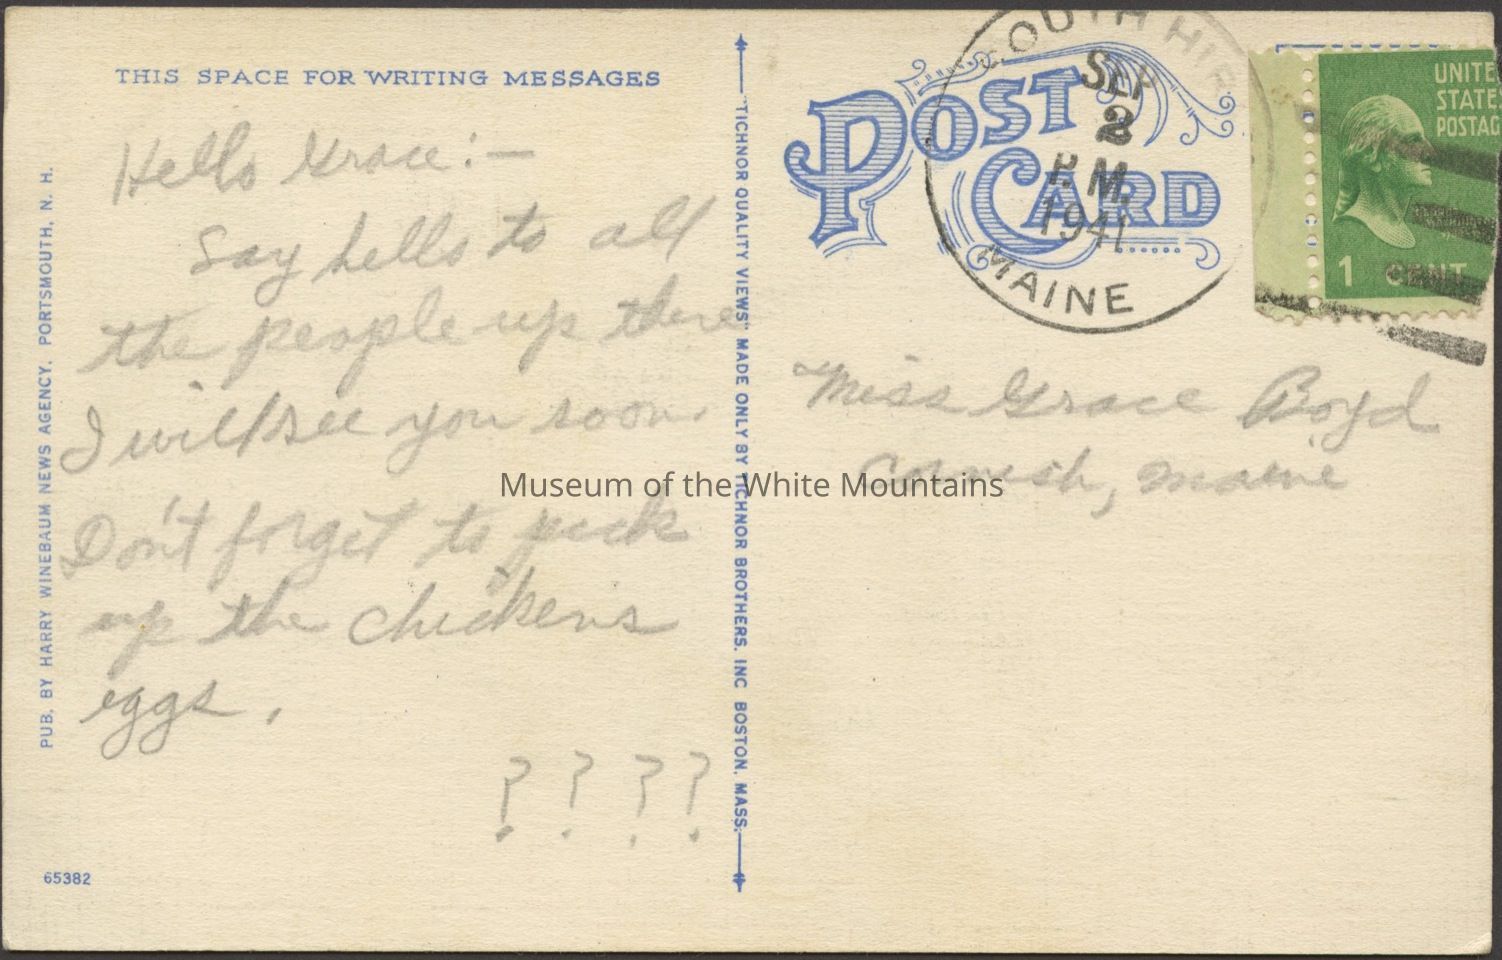 THIS SPACE FOR WRITING MESSAGES
Hello Grace:—
Say hello to all
the people up there
I will see you soon.
Don't forget to pick
up the chickens
eggs.
? ? ? ?
65382
PUB. BY HARRY WINEBAUM NEWS AGENCY, PORTSMOUTH, N. H.
"TICHNOR QUALITY VIEWS" MADE ONLY BY TICHNOR BROTHERS, INC BOSTON, MASS.
POST
CARD
SOUTH HIR
SEP
2
P. M.
1941
MAINE
UNITE
STATES
POSTAG
1 CENT
Miss Grace Boyd
Cornish, Maine
Museum of the White Mountains